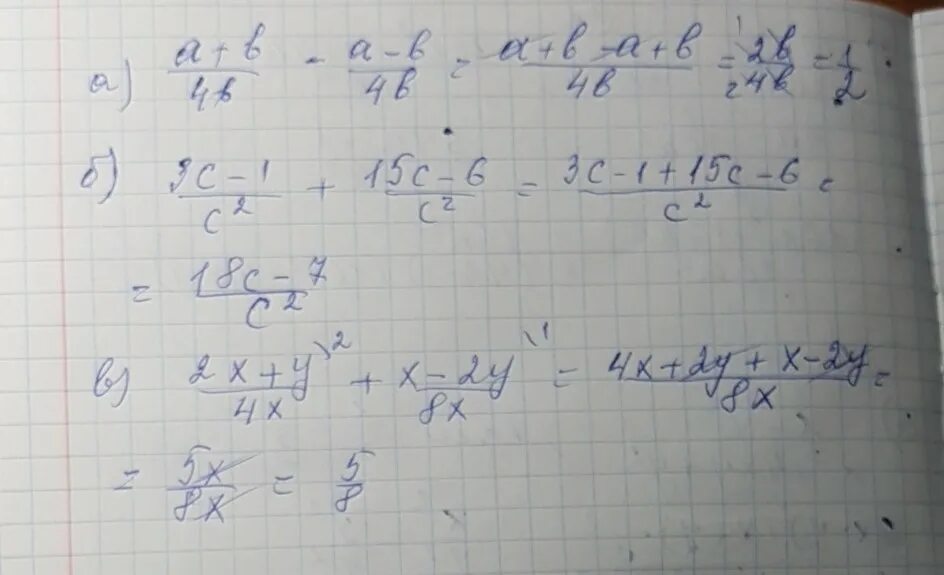 а) (a+b)/(4b) - (a-b)/(4b) = (a+b-a+b)/(4b) = (2b)/(4b) = 1/2.
б) (3c-1)/(c²) + (15c-6)/(c²) = (3c-1+15c-6)/(c²) =
= (18c-7)/(c²)
в) (2x+y)/(4x) \2 + (x-2y)/(8x) \1 = (4x+2y+x-2y)/(8x) =
= (5x)/(8x) = 5/8